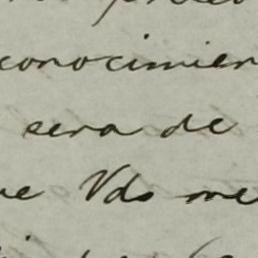 conocimien
sera de
ue Vds me